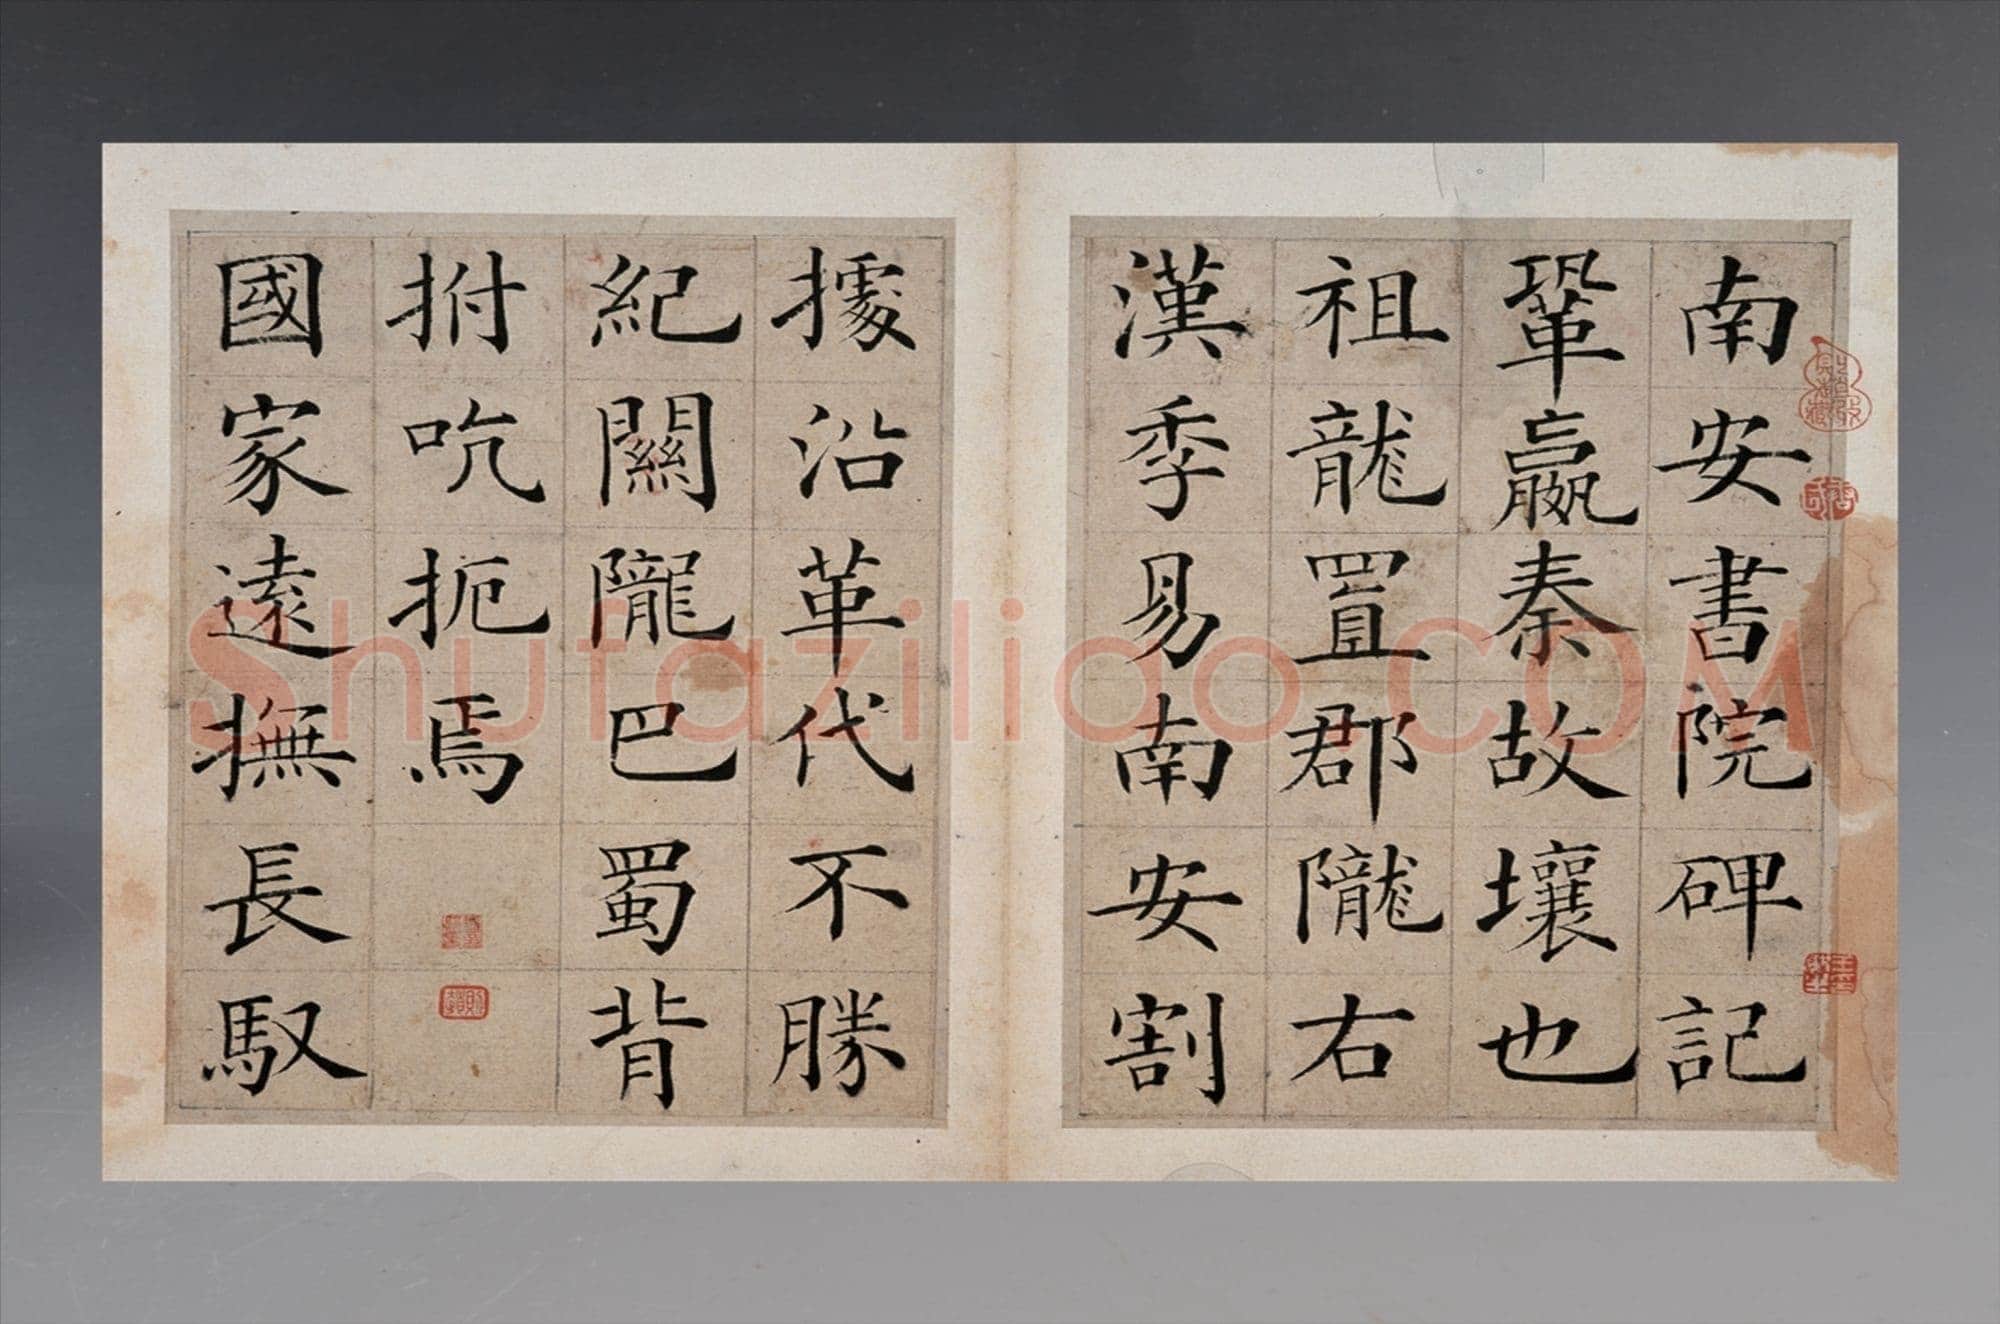 南安書院碑記
鞏嬴秦故壤也
祖龍置郡隴右
漢季易南安割
據沿革代不勝
紀關隴巴蜀背
拊吭扼焉
國家遠撫長馭
Shufaziliao.COM